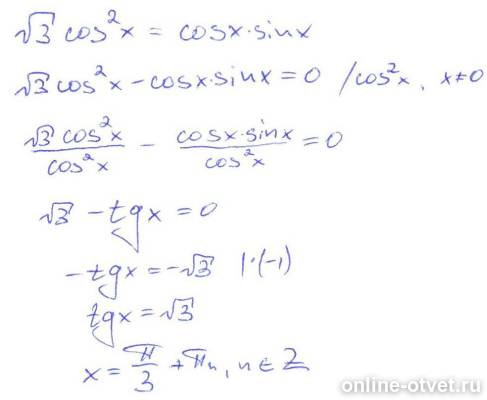 √3 cos²x = cosx·sinx
√3 cos²x − cosx·sinx = 0 /cos²x, x≠0
√3 cos²x/cos²x − cosx·sinx/cos²x = 0
√3 − tgx = 0
−tgx = −√3 |·(−1)
tgx = √3
x = π/3 + πn, n∈Z
online-otvet.ru